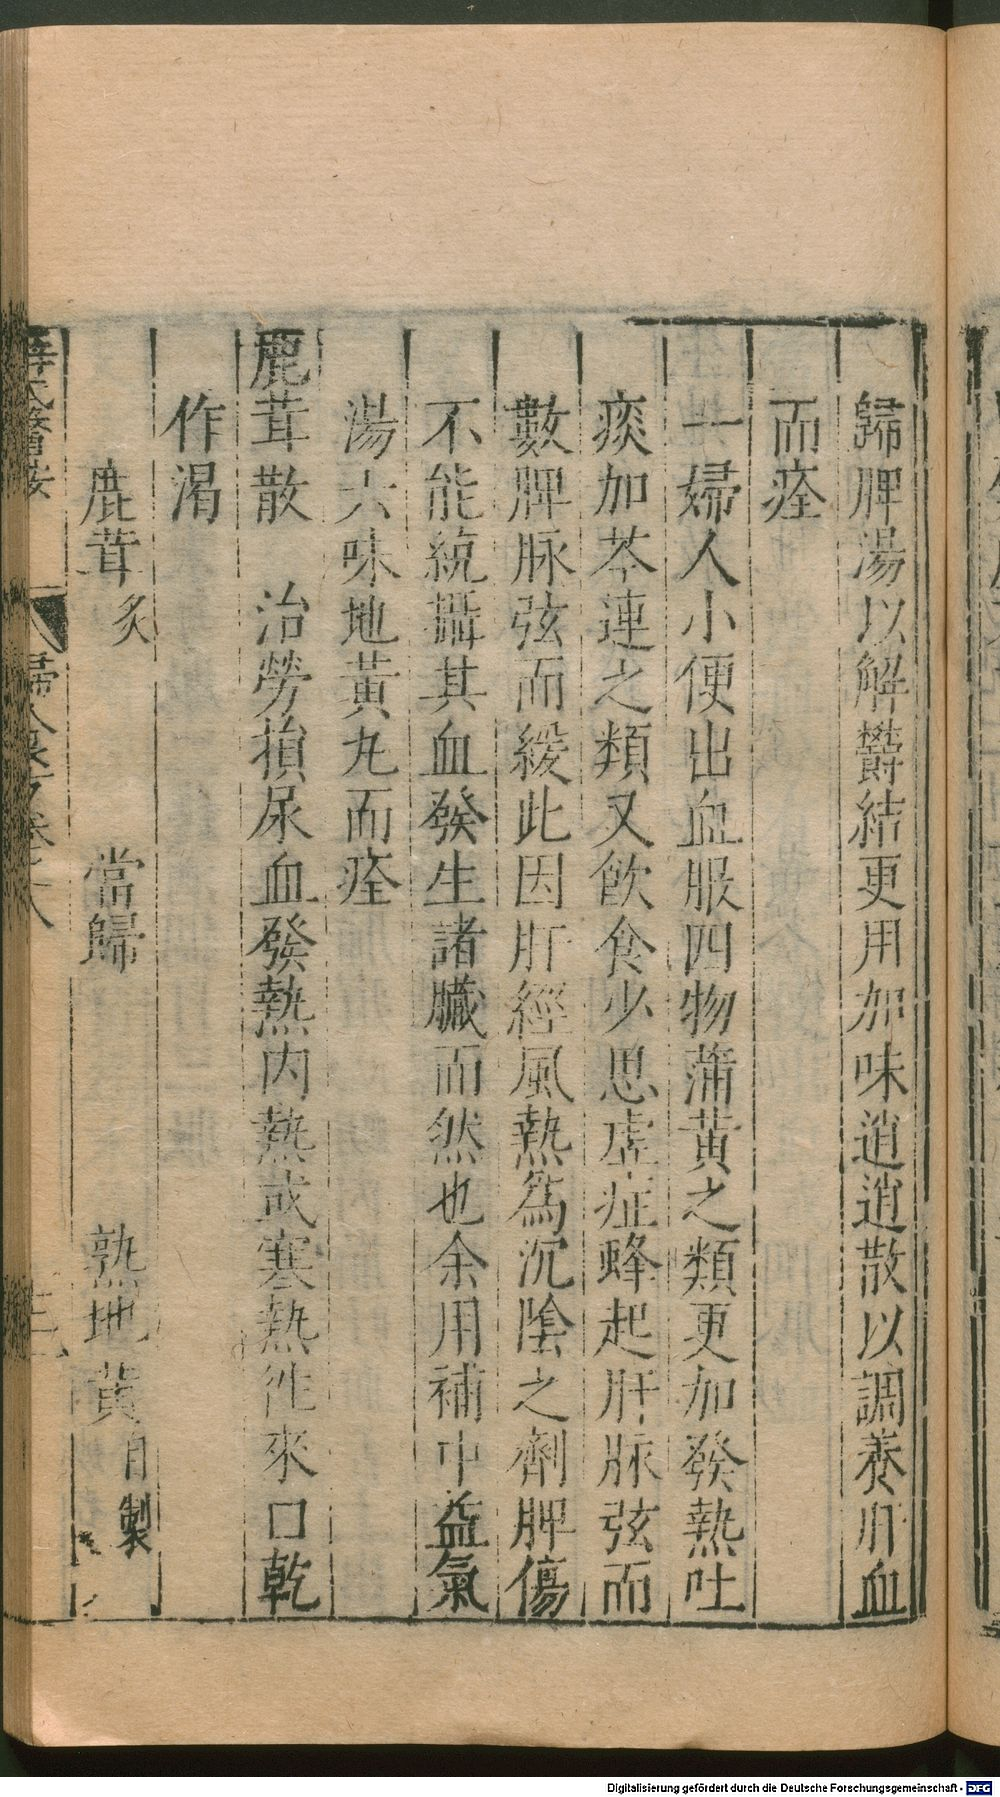 歸脾湯以解鬱結更用加味逍遥散以調養肝血
而痊
一婦人小便出血服四物蒲黃之類更加發熱吐
痰加芩連之類又飲食少思虛症蜂起肝脉弦而
數脾脉弦而緩此因肝經風熱爲沉陰之劑脾傷
不能統攝其血發生諸臟而然也余用補中益氣
湯六味地黃丸而痊
鹿茸散 治勞損尿血發熱內熱或寒熱徃來口乾
作渴
鹿茸炙 當歸 熟地黃自製
Digitalisierung gefördert durch die Deutsche Forschungsgemeinschaft - DFG